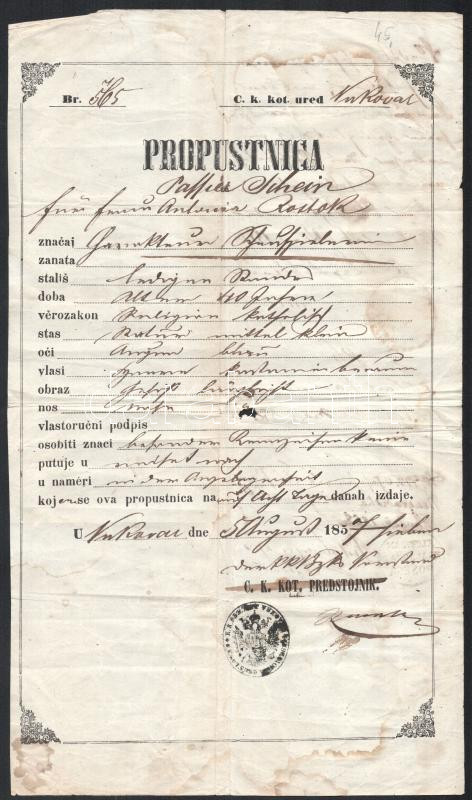 45.
Br. 565 C. k. kot. ured Vukovar
PROPUSTNICA
Passier Schein
für Frau Antonia Rostok
značaj Charakteur Schauspielerin
zanata
stališ ledigen Standes
doba Alter 40 Jahre
věrozakon Religion katholisch
stas Statur mittel klein
oči Augen blau
vlasi Haare kastanienbraun
obraz Gesicht länglicht
nos Nase
vlastoručni podpis
osobiti znaci besondere Kennzeichen keine
putuje u nach
u naměri in der Angelegenheit
koj se ova propustnica na auf Acht Tage danah izdaje.
U Vukovar dne 5 August 1857 sieben
der kk Vorstand
C. K. KOT. PREDSTOJNIK.